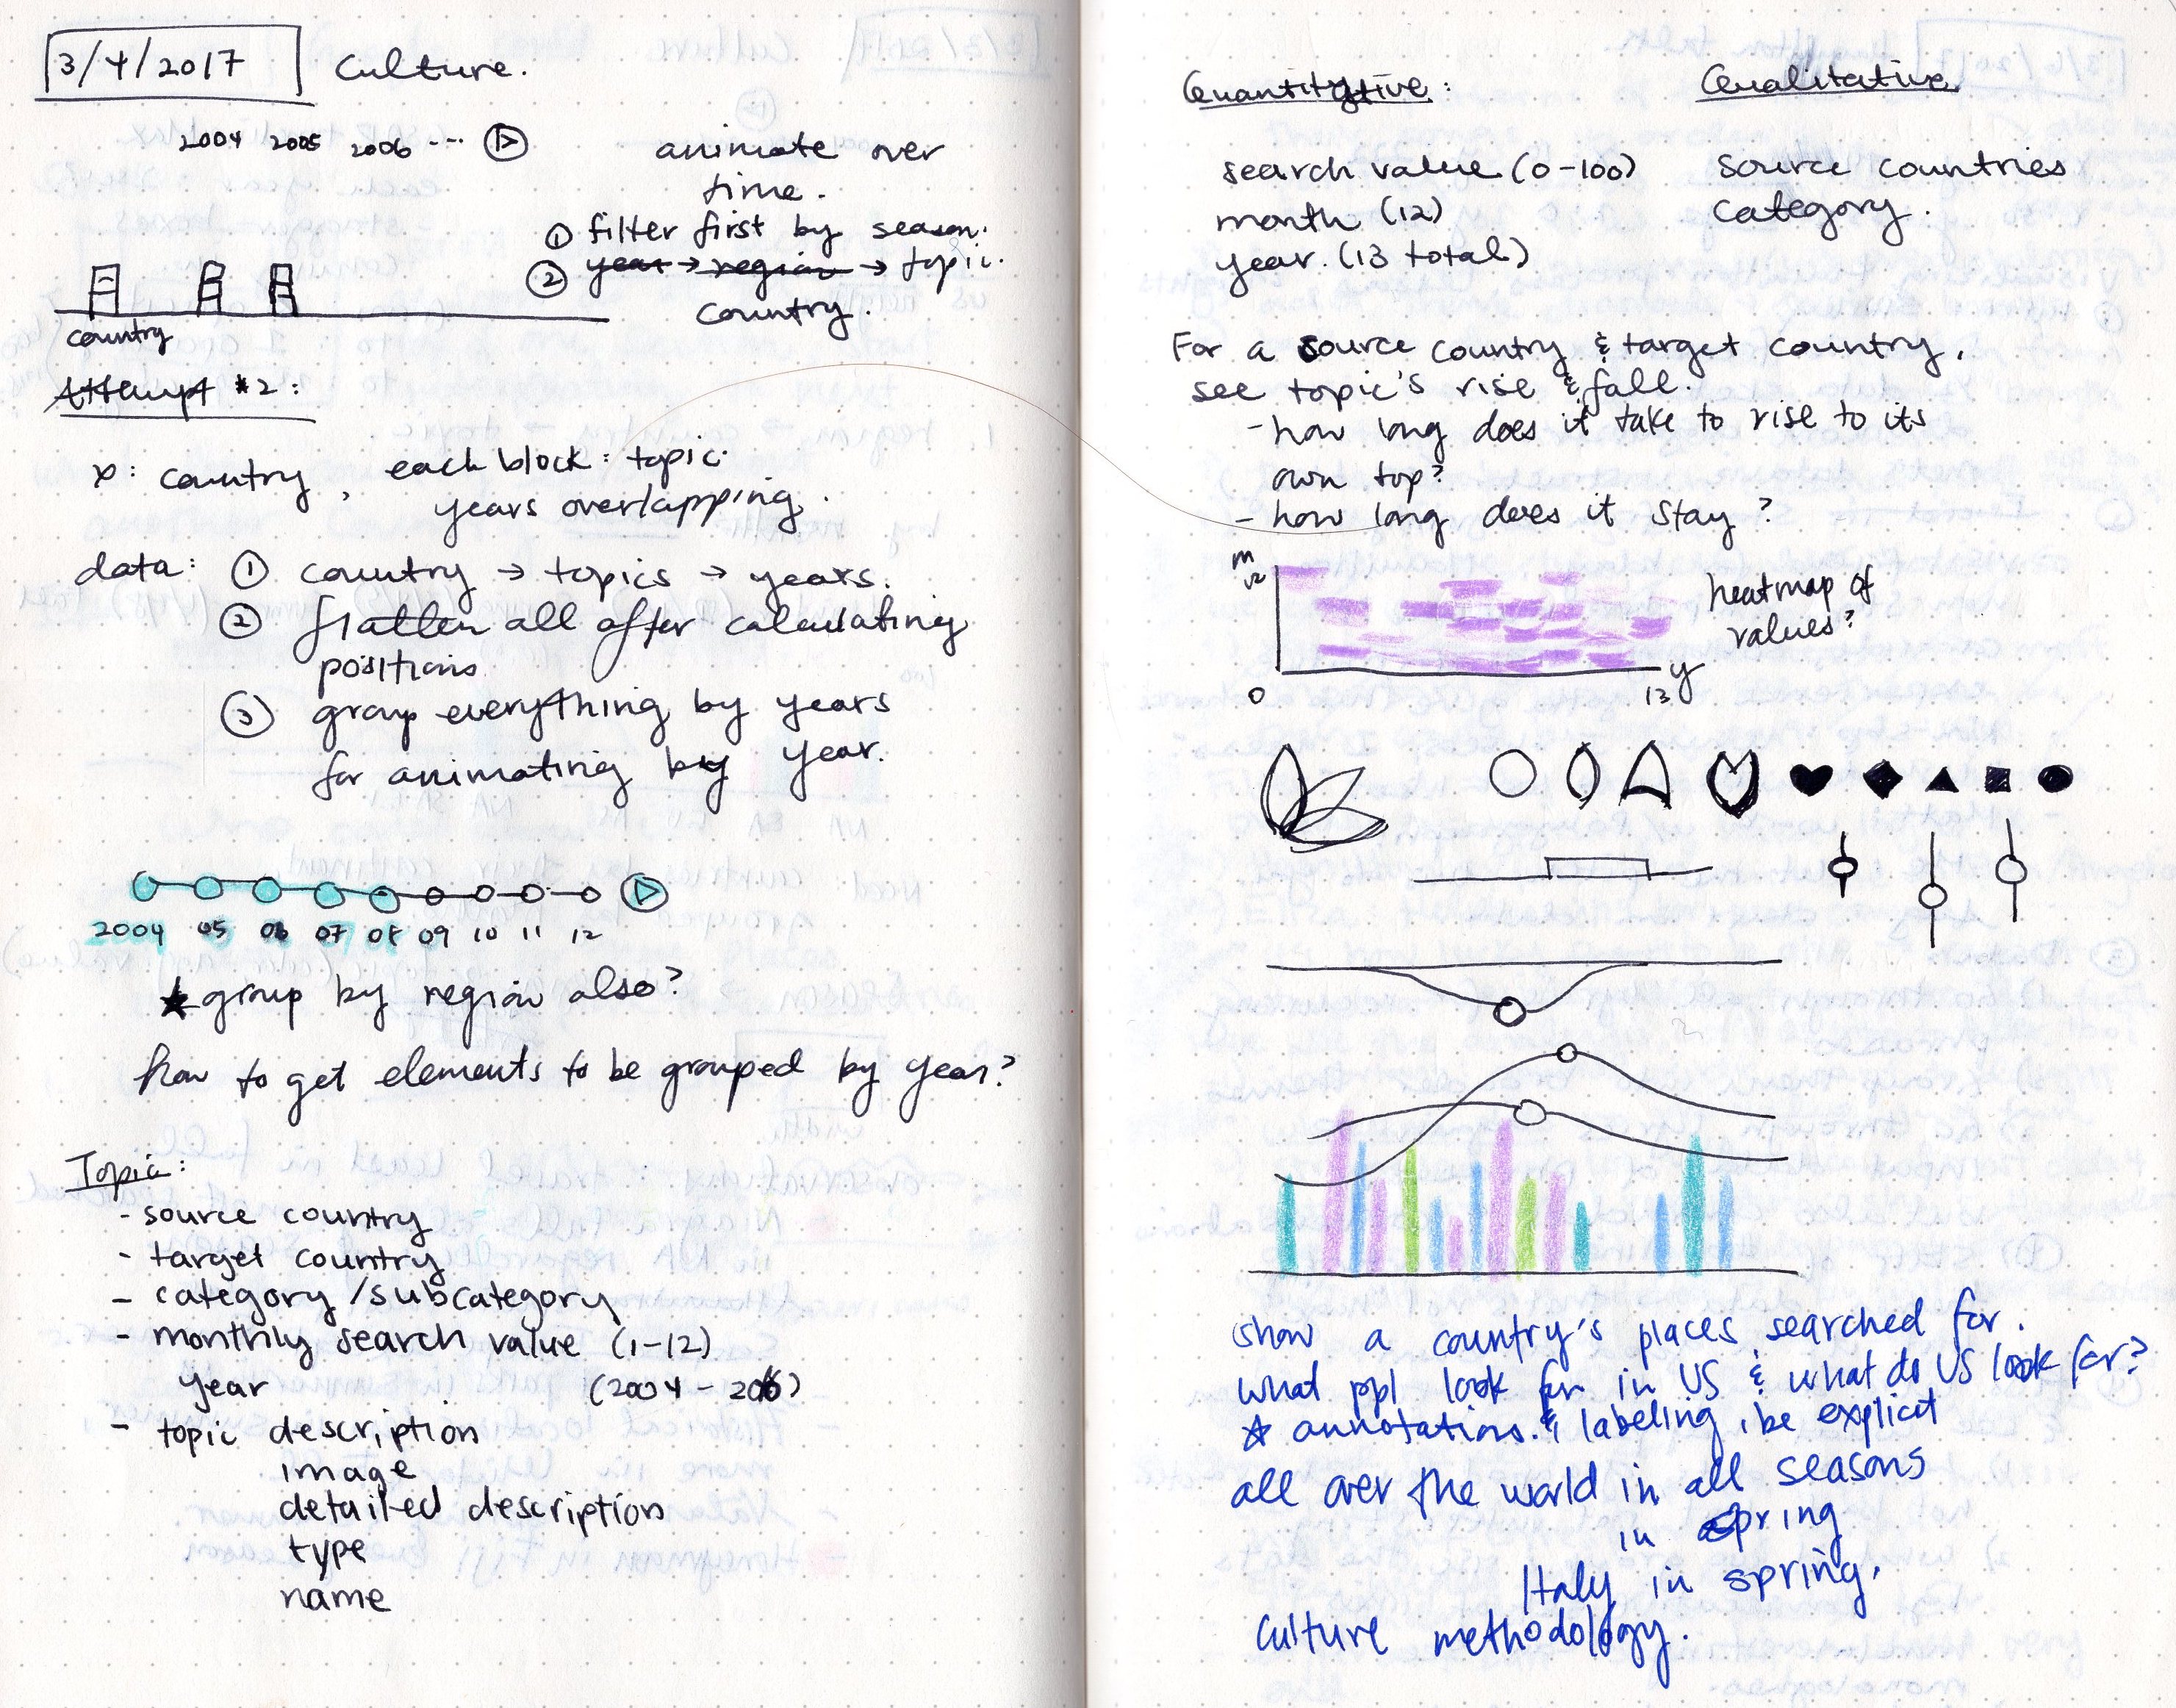 3/4/2017 Culture.
2004 2005 2006 ...
animate over
time.
① filter first by season.
② year → region → topic.
country.
country
Attempt #2:
x: country, each block: topic.
years overlapping.
data: ① country → topics → years.
② flatten all after calculating
positions.
③ group everything by years
for animating by year.
2004 05 06 07 08 09 10 11 12
★ group by region also?
how to get elements to be grouped by year?
Topic:
- source country
- target country
- category/subcategory
- monthly search value (1-12)
year (2004 - 2016)
- topic description
image
detailed description
type
name
Quantitative: Qualitative
search value (0-100) source countries
month (12) category.
year. (13 total)
For a source country & target country,
see topic's rise & fall.
- how long does it take to rise to its
own top?
- how long does it stay?
m
12
heatmap of
values?
y
0 13
show a country's places searched for.
what ppl look for in US & what do US look for?
☆ annotations & labeling, be explicit
all over the world in all seasons
in spring
Italy in spring.
Culture methodology.